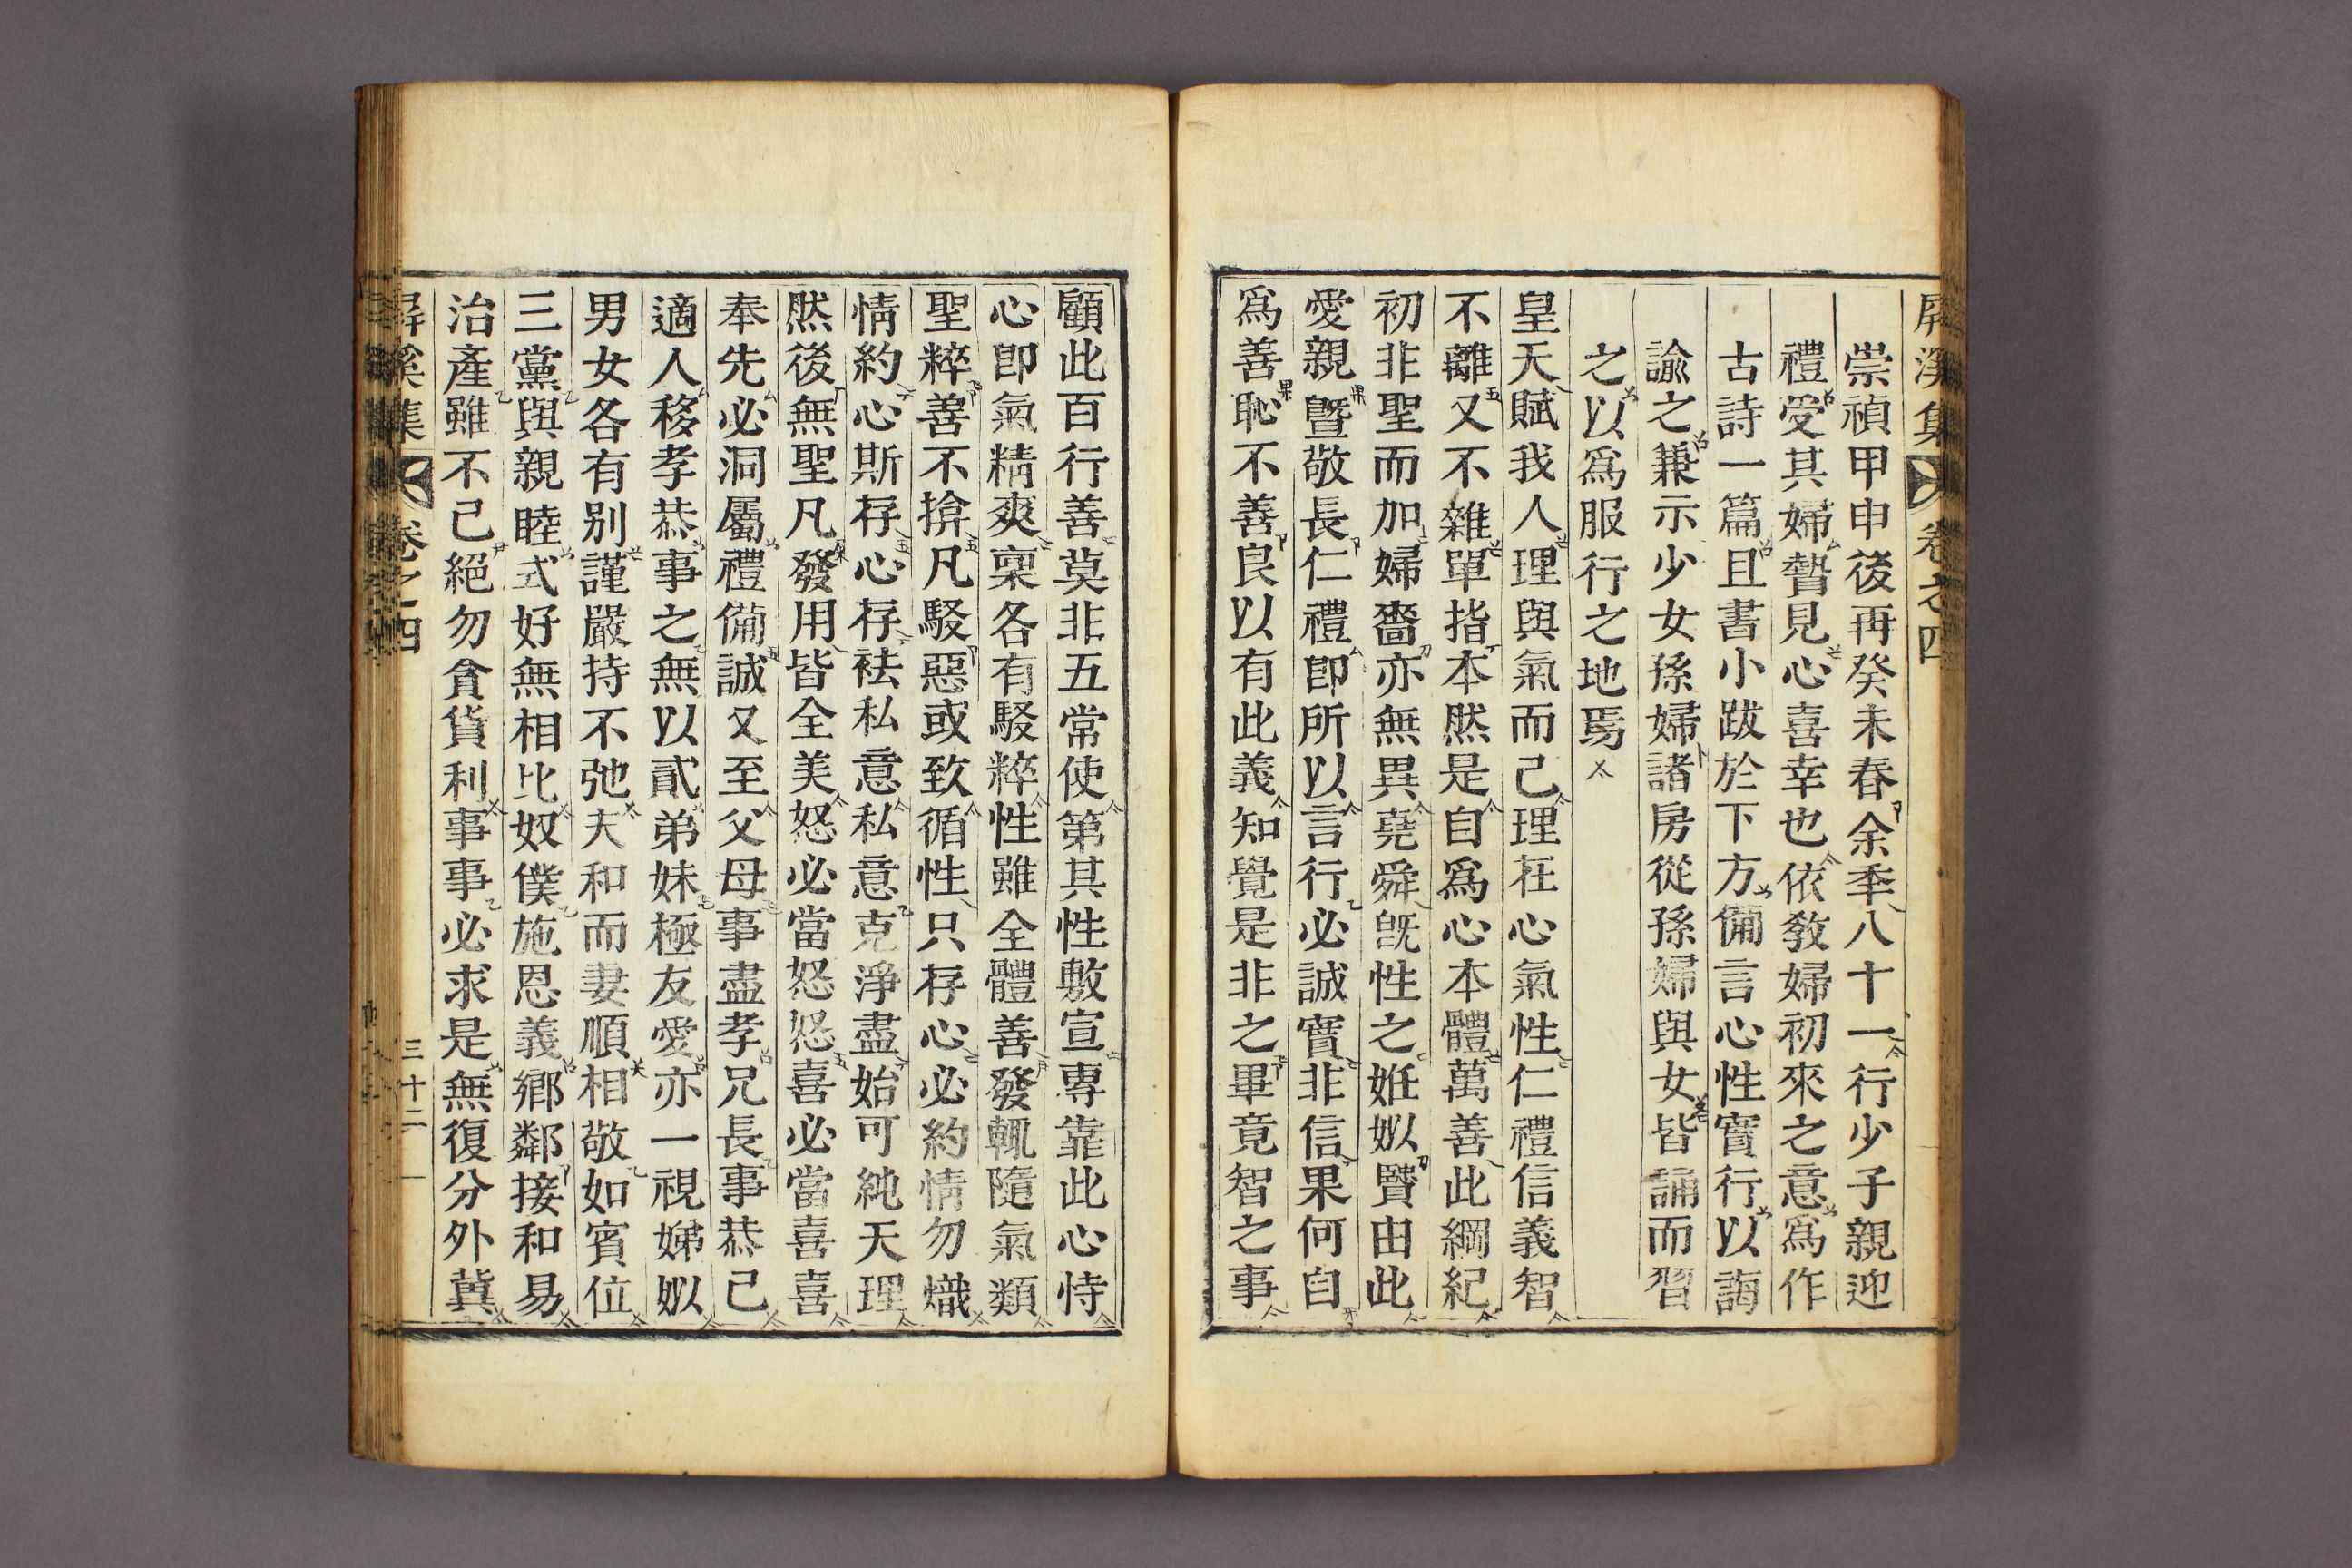 屛溪集 卷之四
崇禎甲申後再癸未春余季八十一行少子親迎
禮受其婦贄見心喜幸也依敎婦初來之意爲作
古詩一篇且書小跋於下方備言心性實行以誨
諭之兼示少女孫婦諸房從孫婦與女皆誦而習
之以爲服行之地焉
皇天賦我人理與氣而已理在心氣性仁禮信義智
不離又不雜單指本然是自爲心本體萬善此綱紀
初非聖而加婦嗇亦無異堯舜旣性之姙姒賢由此
愛親曁敬長仁禮卽所以言行必誠實非信果何自
爲善恥不善良以有此義知覺是非之畢竟智之事
顧此百行善莫非五常使第其性敷宣專靠此心恃
心卽氣精爽稟各有駁粹性雖全體善發輒隨氣類
聖粹善不揜凡駁惡或致循性只存心必約情勿熾
情約心斯存心存祛私意私意克淨盡始可純天理
然後無聖凡發用皆全美怒必當怒怒喜必當喜喜
奉先必洞屬禮備誠又至父母事盡孝兄長事恭己
適人移孝恭事之無以貳弟妹極友愛亦一視娣姒
男女各有別謹嚴持不弛夫和而妻順相敬如賓位
三黨與親睦式好無相比奴僕施恩義鄕鄰接和易
治產雖不已絕勿貪貨利事事必求是無復分外冀
屛溪集 卷之四 三十二